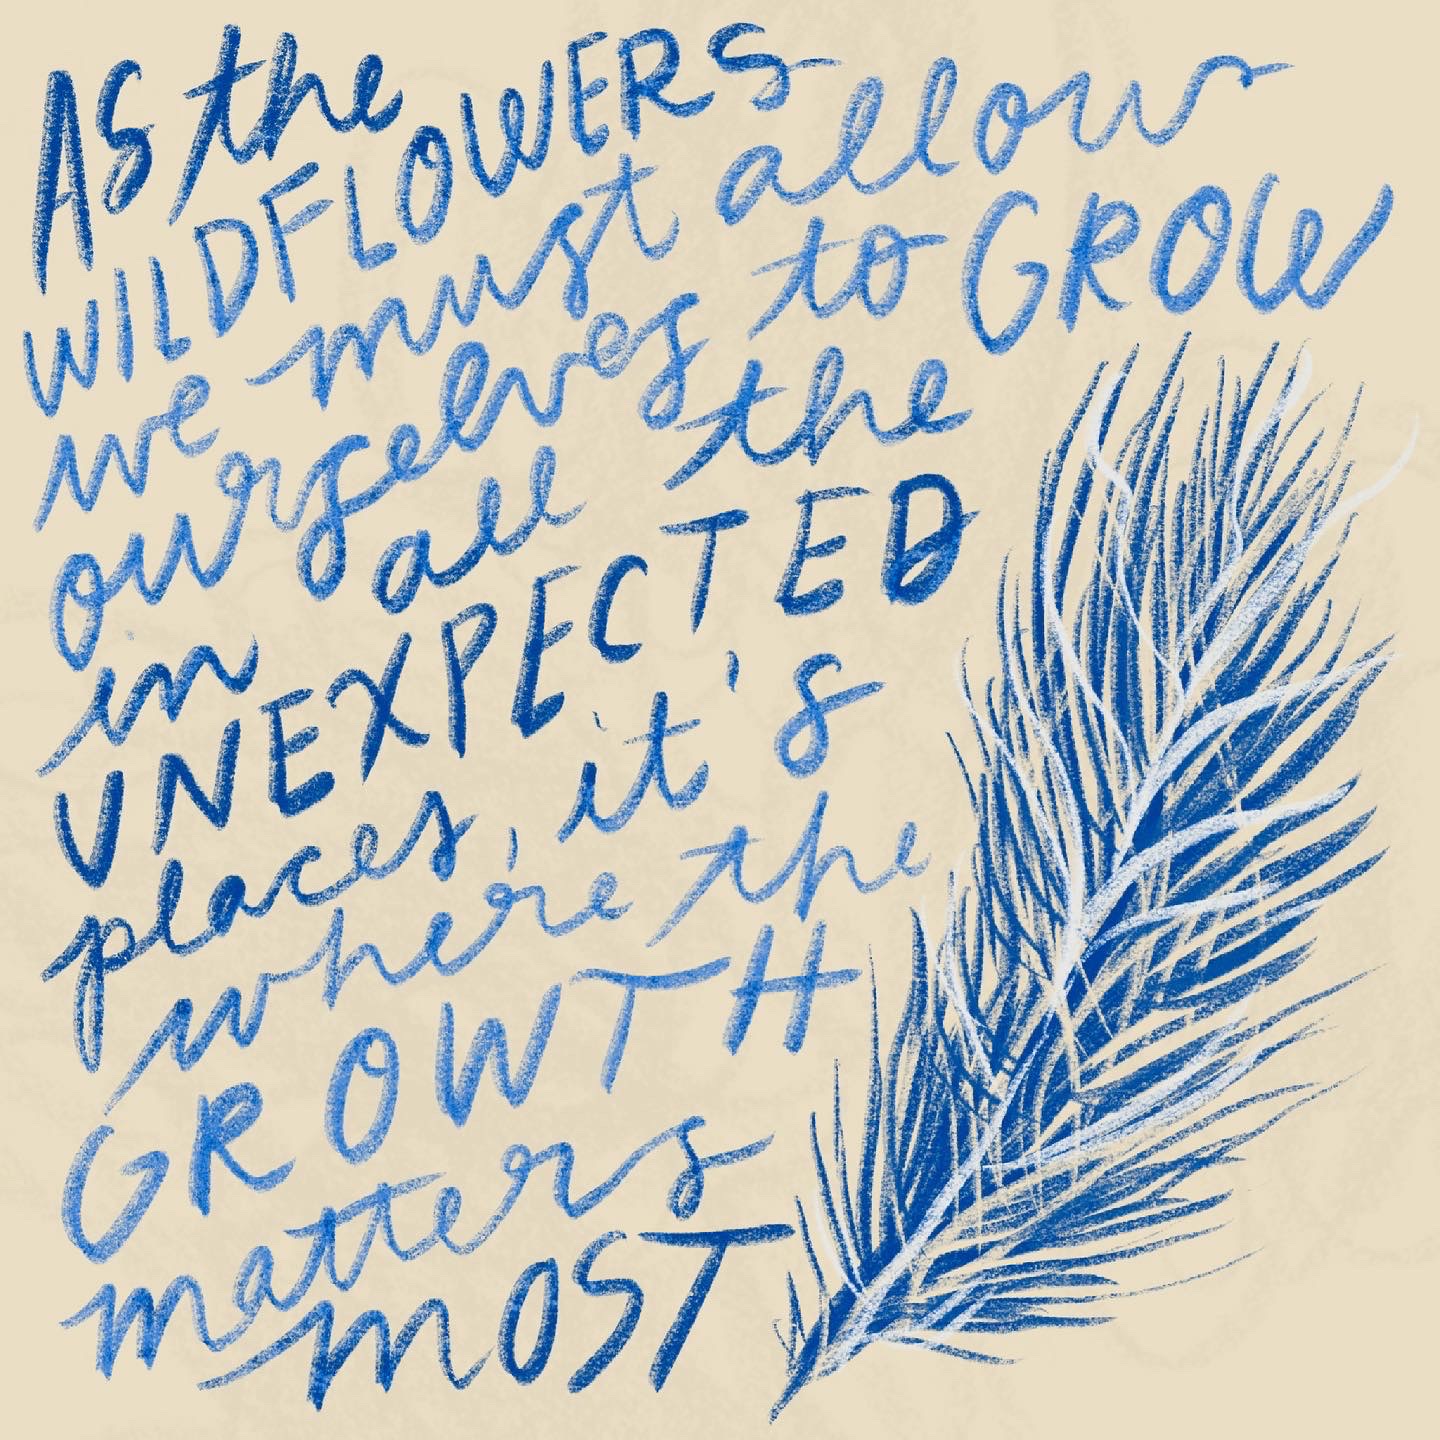 As the
WILDFLOWERS
we must allow
ourselves to GROW
in all the
UNEXPECTED
places, it's
where the
GROWTH
matters
mOST